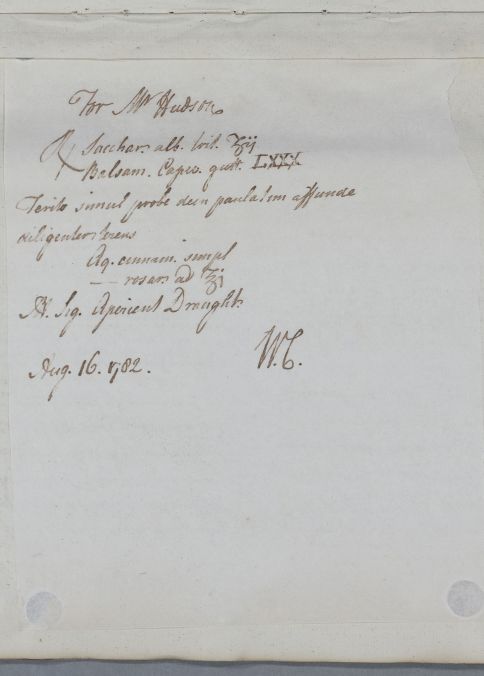 For Mr Hudson
℞ Sacchar. alb. trit. ʒij
Balsam. Capiv. gutt. LXXX
Terito simul probe dein paulatim affunde
diligenter terens
Aq. cinnam. simpl
—— rosar. ad ℥j
M. Sig. Aperient Draught.
Aug. 16. 1782. W.C.